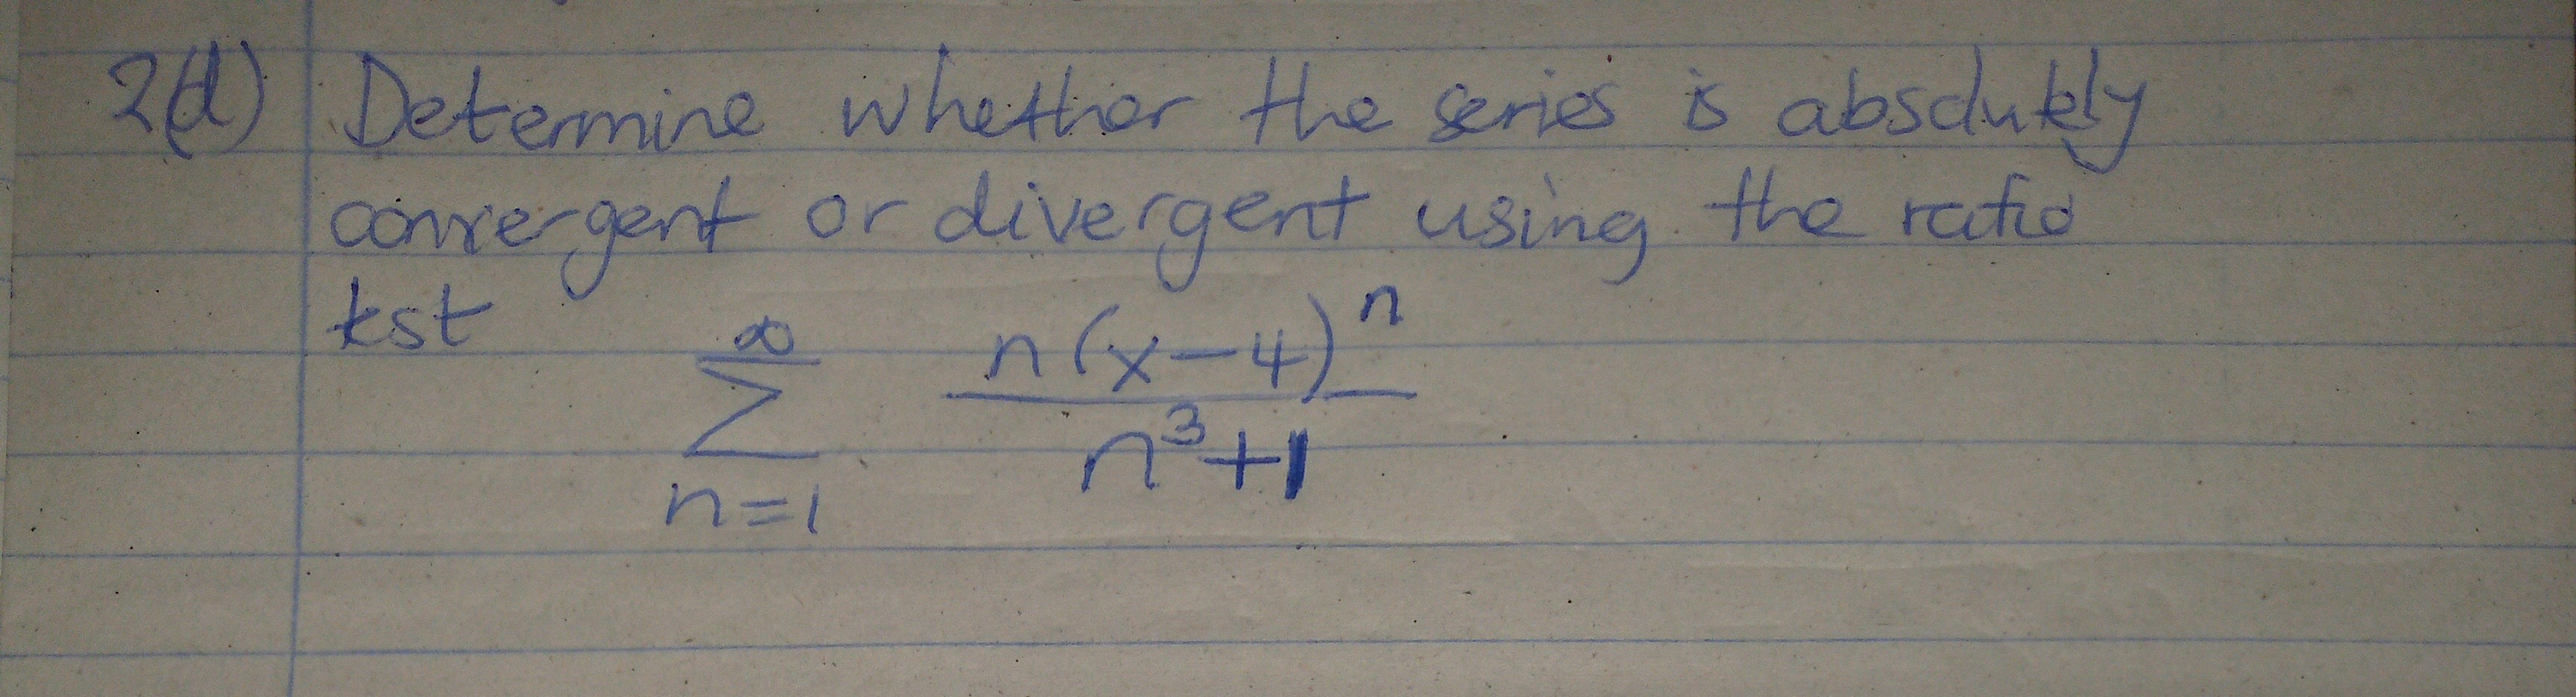 2(d) Determine whether the series is absolutely
convergent or divergent using the ratio
test
∞
∑ n(x-4)^n / n^3+1
n=1